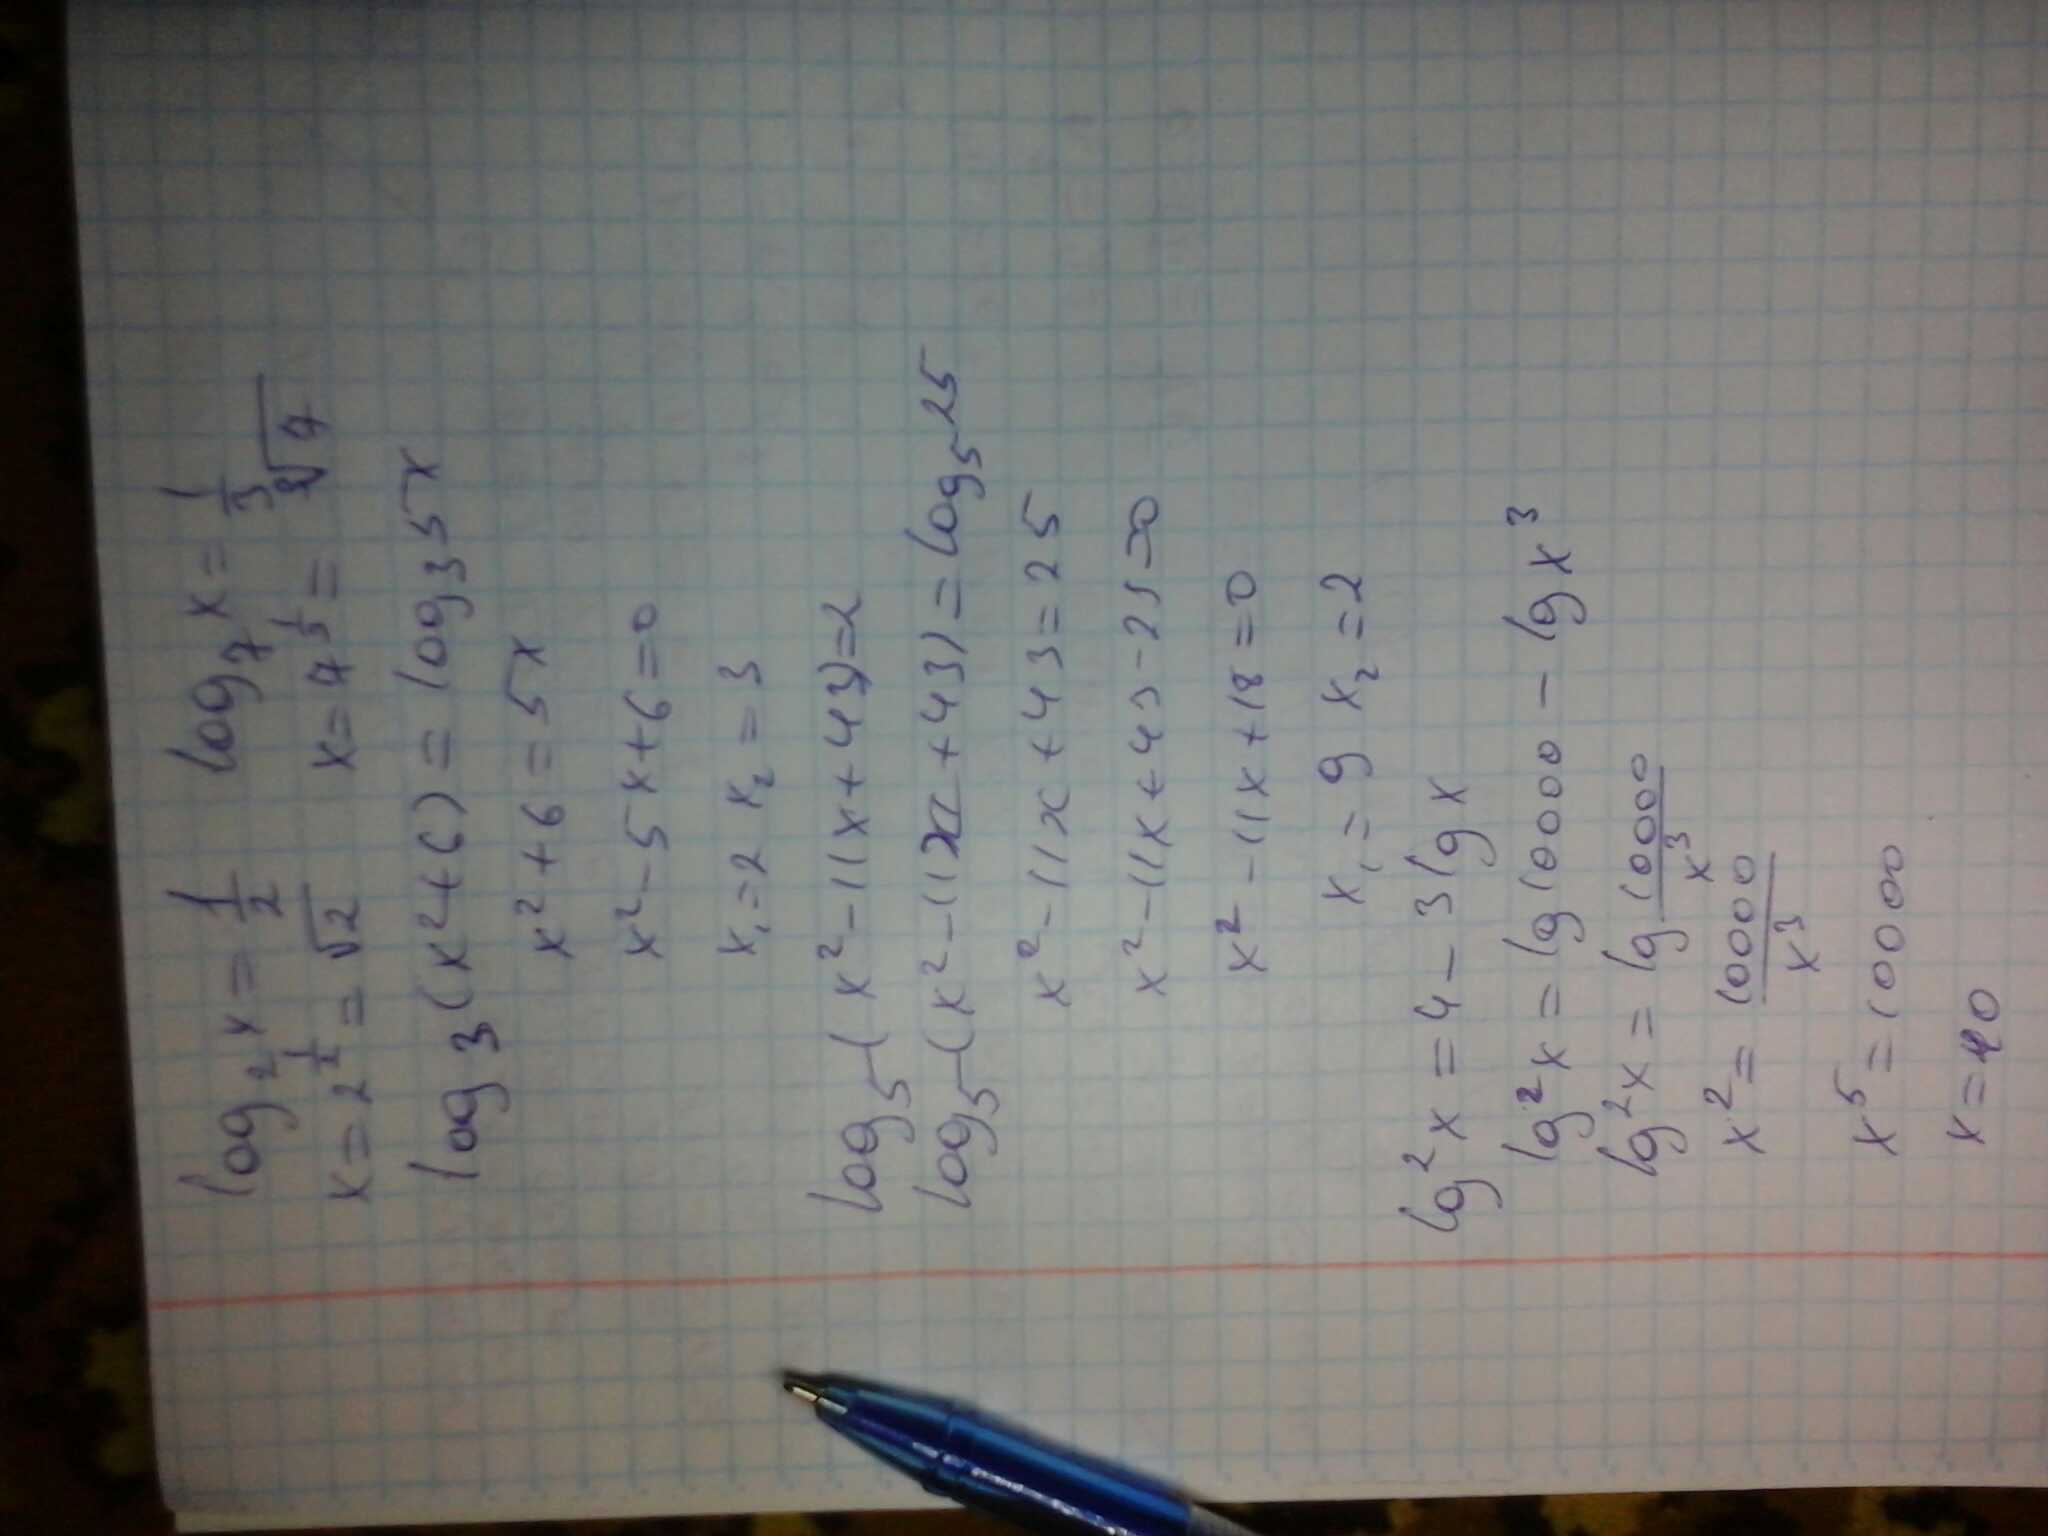 log₂x = 1/2 log₇x = 1/3
x = 2^(1/2) = √2 x = 7^(1/3) = ∛7
log₃(x²+6) = log₃5x
x²+6 = 5x
x²-5x+6=0
x₁=2 x₂=3
log₅(x²-11x+43)=2
log₅(x²-11x+43)=log₅25
x²-11x+43=25
x²-11x+43-25=0
x²-11x+18=0
x₁=9 x₂=2
lg²x=4-3lgx
lg²x=lg10000-lgx³
lg²x=lg 10000/x³
x²=10000/x³
x⁵=10000